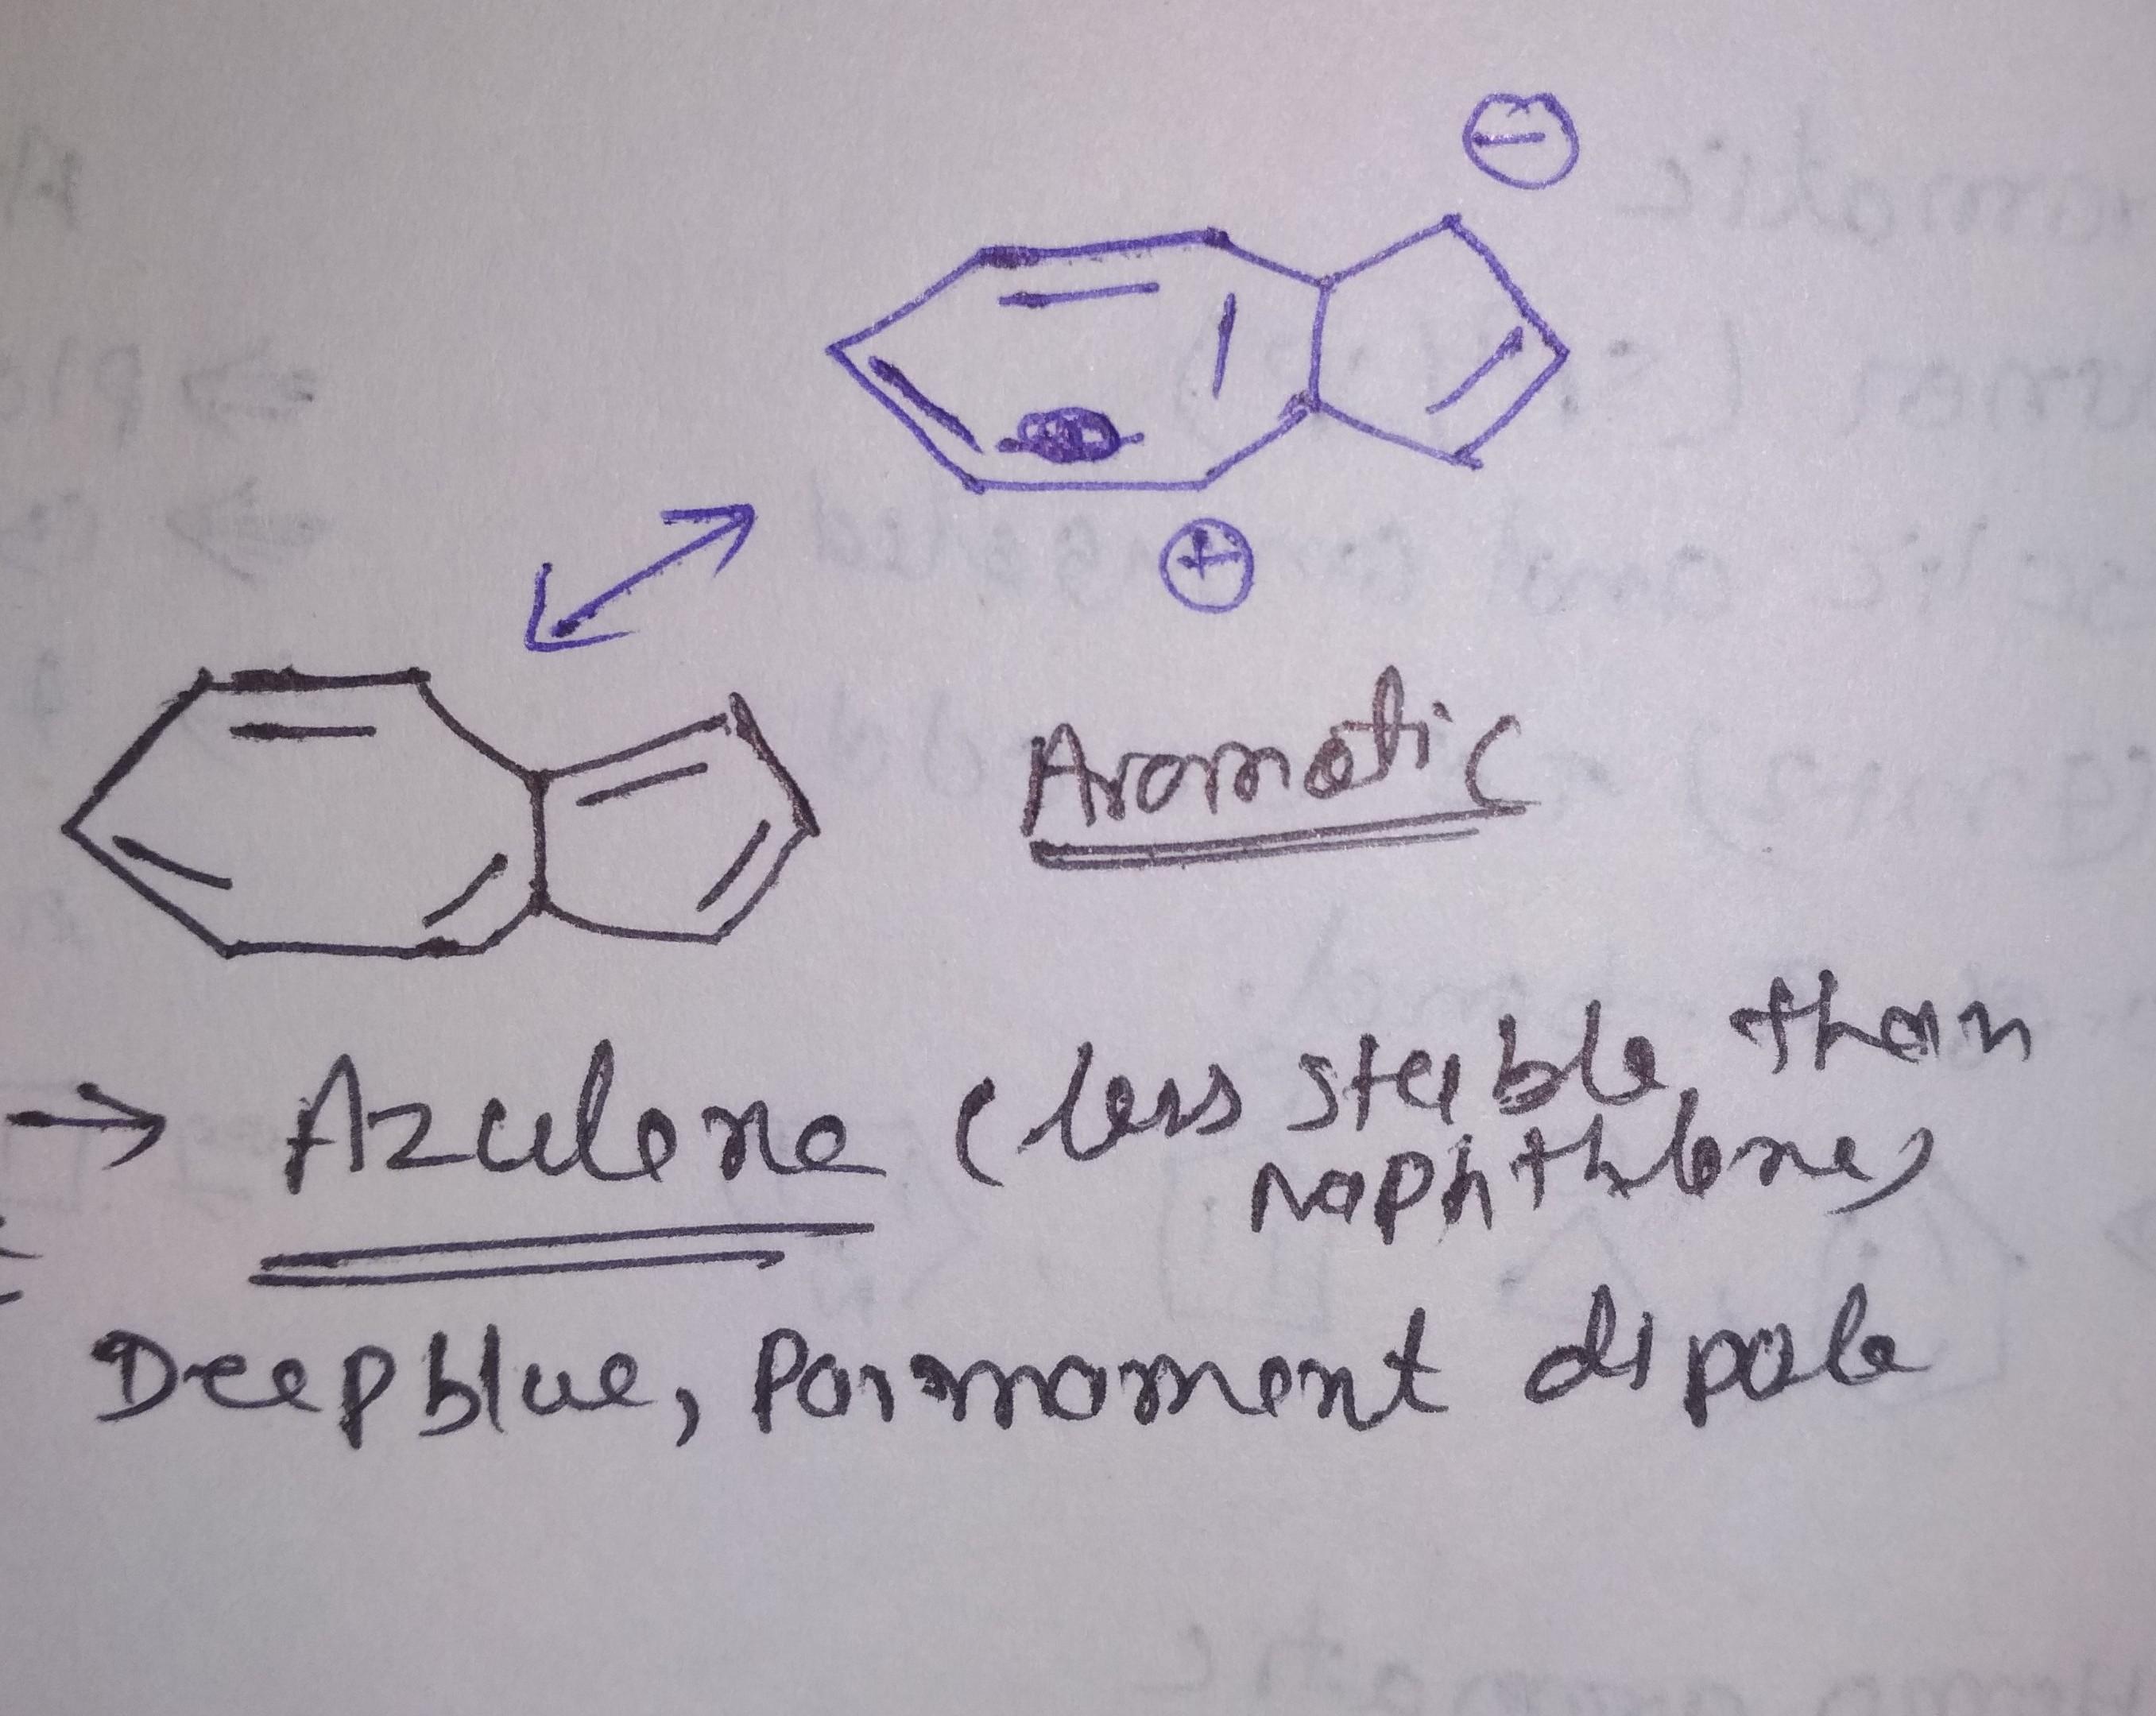 ⊖
⊕
Aromatic
→ Azulene (less stable than
Naphthlene)
Deep blue, Parmament dipole